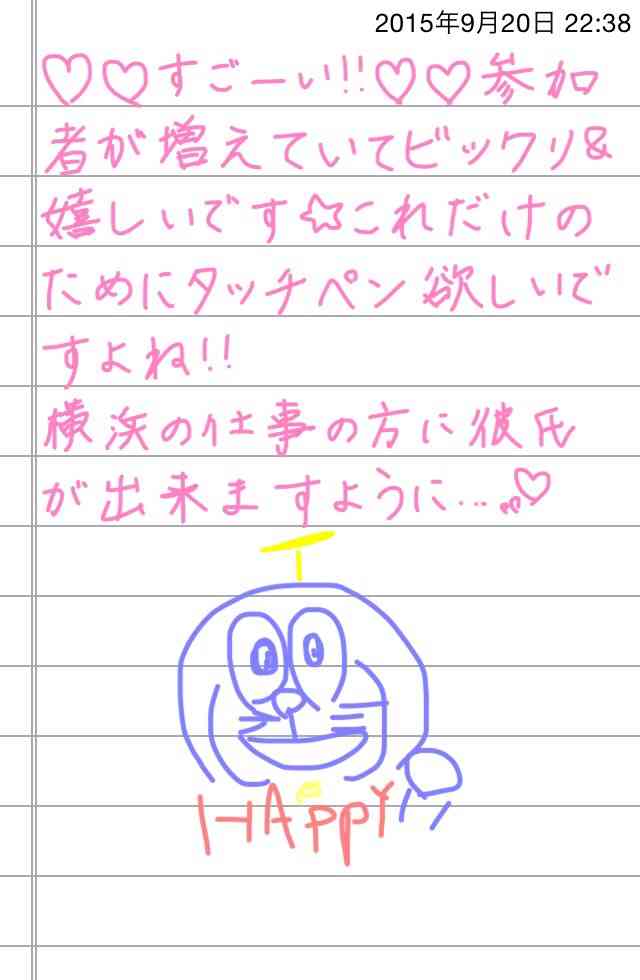 2015年9月20日 22:38
♡♡すごーい!!♡♡参加
者が増えていてビックリ&
嬉しいです☆これだけの
ためにタッチペン欲しいで
すよね!!
横浜の仕事の方に彼氏
が出来ますように…♡
HAppy